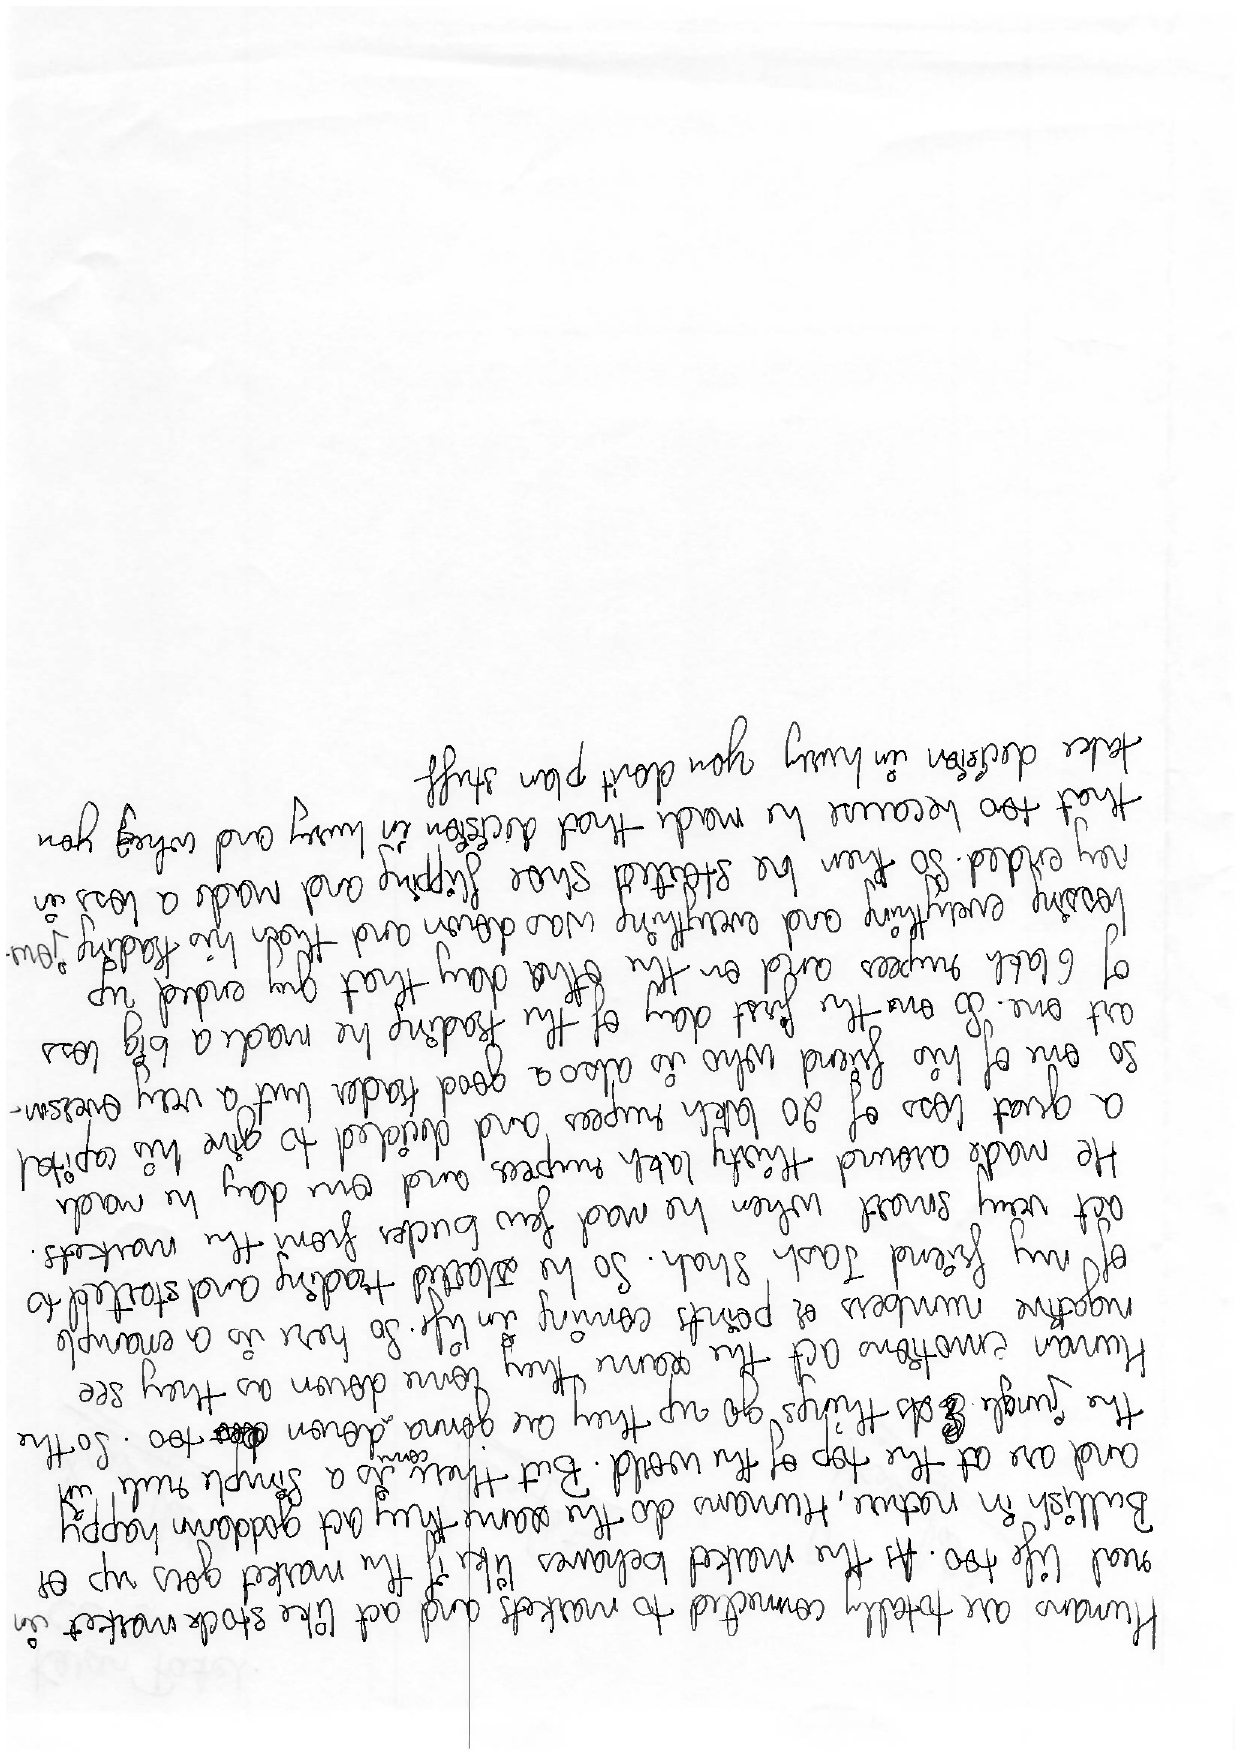 Humans are totally connected to markets and act like stock market in
real life too. As the market behaves like if the market goes up or
Bullish in nature, Humans do the same they act goddamn happy
and are at the top of the world. But there is a simple rule in
the jungle. As things go up they are gonna come down too. So the
Human emotions act the same they come down as they see
negative numbers or points coming in life. So here is a example
of my friend Jash Shah. So he started trading and started to
act very smart when he mad few bucks from the markets.
He made around thirty lakh rupees and one day he made
a great loss of 20 lakh rupees and decided to give his capital
so one of his friend who is also a good trader but a very oversm-
art one. So one the first day of the trading he made a big loss
of 6 lakh rupees and on the other day that guy ended up
lossing everything and everything was down and then his trading jour-
ney ended. So then he started shoe flipping and made a loss in
that too because he made that decision in hurry and when you
take decision in hurry you don't plan stuff